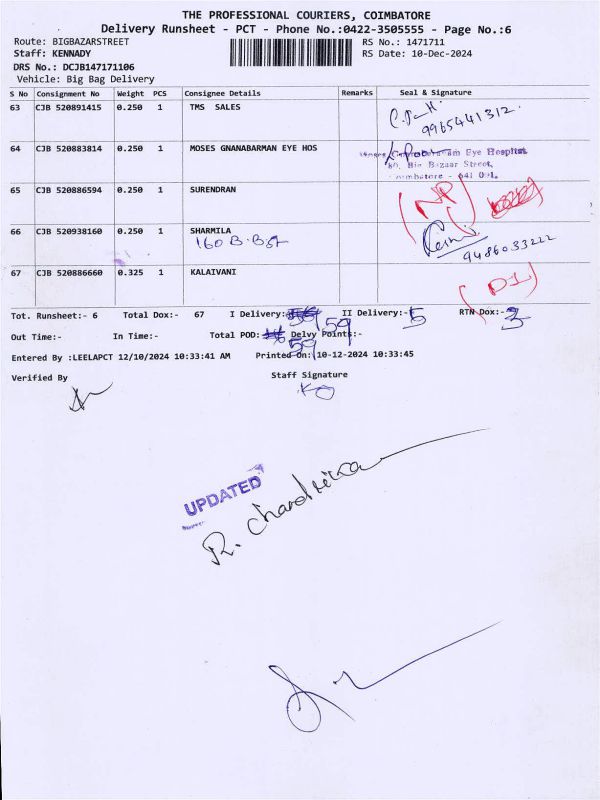 THE PROFESSIONAL COURIERS, COIMBATORE
Delivery Runsheet - PCT - Phone No.:0422-3505555 - Page No.:6
Route: BIGBAZARSTREET RS No.: 1471711
Staff: KENNADY RS Date: 10-Dec-2024
DRS No.: DCJB147171106
Vehicle: Big Bag Delivery
S No Consignment No Weight PCS Consignee Details Remarks Seal & Signature
63 CJB 520891415 0.250 1 TMS SALES
9965441312.
64 CJB 520883814 0.250 1 MOSES GNANABARMAN EYE HOS
Eye Hospital
80, Big Bazaar Street,
Coimbatore - 641 001.
65 CJB 520886594 0.250 1 SURENDRAN
(NP)
66 CJB 520938160 0.250 1 SHARMILA
160 B.B.St
9486033222
67 CJB 520886660 0.325 1 KALAIVANI
(D1)
Tot. Runsheet:- 6 Total Dox:- 67 I Delivery: 59 II Delivery:- 5 RTN Dox:- 3
Out Time:- In Time:- Total POD: 59 Delvy Points:-
Entered By :LEELAPCT 12/10/2024 10:33:41 AM Printed On:10-12-2024 10:33:45
Verified By Staff Signature
UPDATED
R. Chandrika